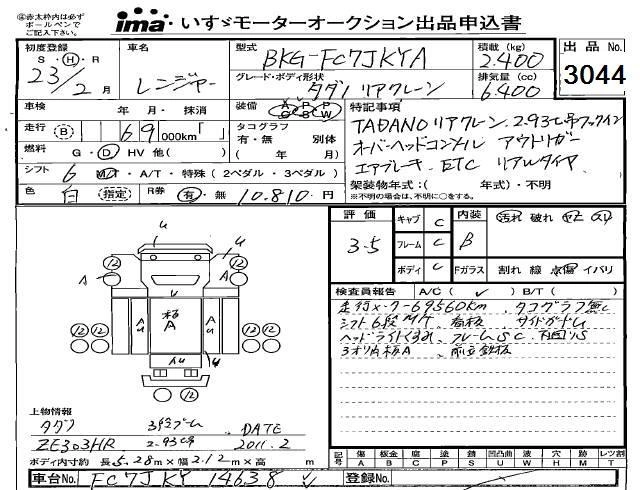 ㊟赤太枠内は必ず
ボールペンで
ご記入下さい。
ima いすゞモーターオークション出品申込書
初度登録
S・H・R
23/2月
車名
レンジャー
型式
BKG-FC7JKYA
グレード・ボディ形状
タダノ リアクレーン
積載(kg)
2.400
排気量(cc)
6.400
出品No.
3044
車検 年 月・抹消
装備 A/C P/S P/W
走行 (B) 69 000km「 」
タコグラフ
有・無 別体
( 年 月)
燃料 G・D HV 他( )
シフト 6 M/T・A/T・特殊(2ペダル・3ペダル)
色 白 (指定) R券 有・無 10.810円
特記事項
TADANO リアクレーン. 2.93t吊フックイン
オーバーヘッドコンソール アウトリガー
エアブレーキ. ETC リアルタイヤ
架装物年式:( 年式)・不明
※不明の場合は、不明に○をする。
評価 3-5
キャブ C
フレーム C
ボディ C
内装 B
汚れ 破れ ヤニ スリ
Fガラス 割れ 線 点傷 イバリ
検査員報告 A/C( ✓ ) B/T( )
走行メーター69560km. タコグラフ無し
シフト6段M/T 看板 サイドガード
フレームSC. 下回りS
3オリ内板A
u
u
⑫ ⑫
A
A
u
板
A
A
u
⑫ ⑫ ⑫ ⑫
Au
u
上物情報
タダノ 3段ブーム DATE
ZE303HR 2.93t吊 2011.2
ボディ内寸約 長5.28m×幅2.12m×高 m
記号 傷 A 板金 B 腐 C 塗 P 錆 S 凹凸曲 U ウェーブ W 穴 H 跡 M レツ割 T
車台No. FC7JKY 14638 ✓
登録No.